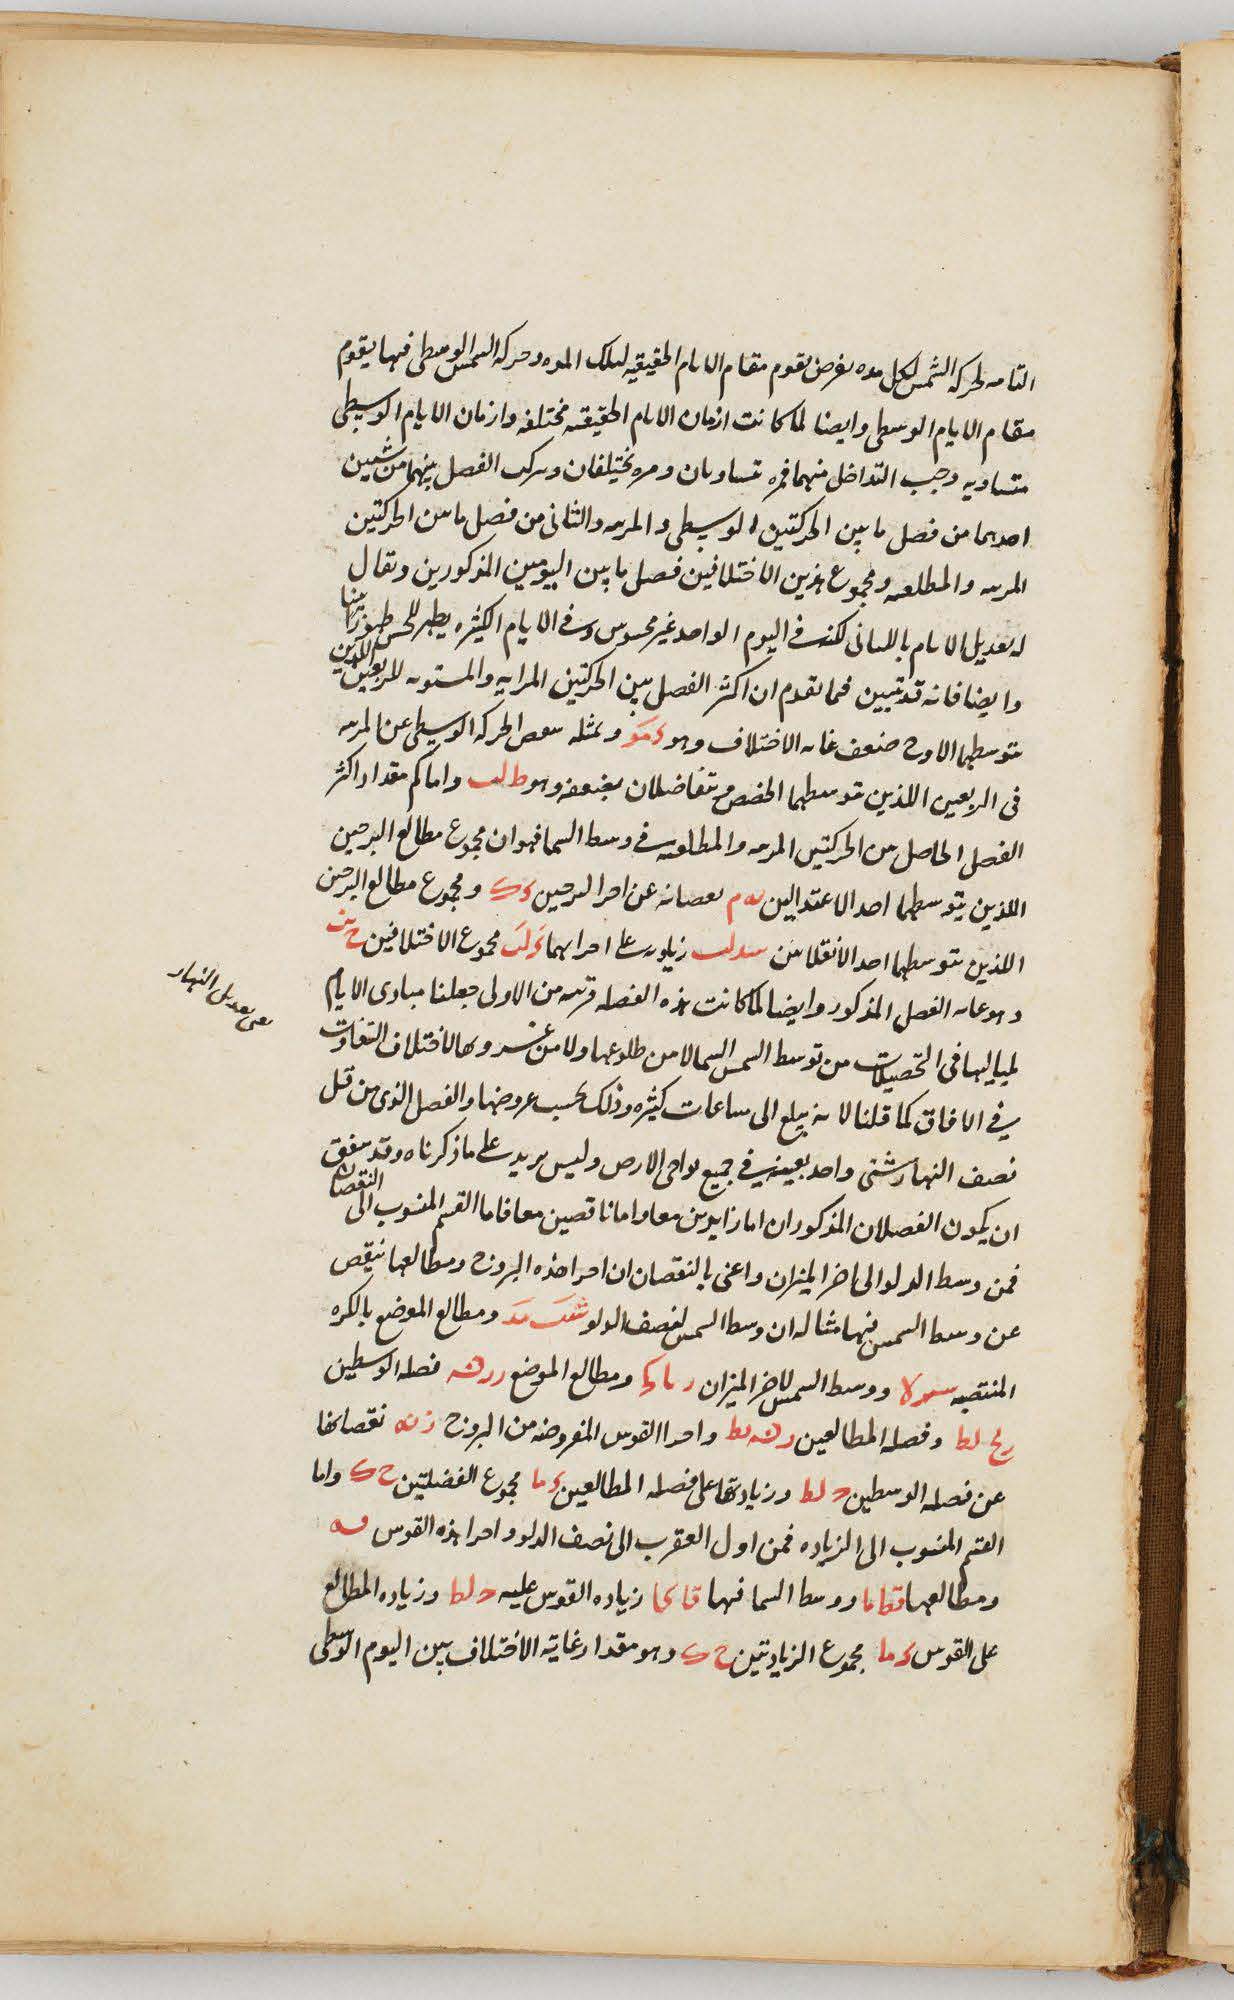 التامه لحركة الشمس لكل مده يفرض يقوم مقام الايام الحقيقيه لتلك المده وحركة الشمس الوسطى فيها يقوم
مقام الايام الوسطى وايضا لما كانت ازمان الايام الحقيقيه مختلفه وازمان الايام الوسطى
متساويه وجب التداخل منهما فمره تتساويان ومره تختلفان وتركب الفصل بينهما من شيئين
احدهما من فصل ما بين الحركتين الوسطى والمرييه والثانى من فصل ما بين الحركتين
المرييه والمطلعيه ومجموع هذين الاختلافين فصل ما بين اليومين المذكورين ويقال
له تعديل الايام بلياليها لكنه فى اليوم الواحد غير محسوس وفى الايام الكثيره يظهر للحس ظهورا بينا
وايضا فانه قد تبين فيما تقدم ان اكثر الفصل بين الحركتين المراييه والمستويه للربعين اللذين
يتوسطهما الاوج ضعف غايه الاختلاف وهو د مو وبمثله ينقص الحركه الوسطى عن المرييه
فى الربعين اللذين يتوسطهما الحضيض فيتفاضلان بضعفه وهو ط لب واما كم مقدار اكثر
الفصل الحاصل من الحركتين المرييه والمطلعيه فى وسط السما فهو ان مجموع مطالع البرجين
اللذين يتوسطهما احد الاعتدالين نه م نقصانه عن اجزا البرجين د ك ومجموع مطالع البرجين
اللذين يتوسطهما احد الانقلابين سد لب زيادته على اجزايهما د لب مجموع الاختلافين ح نب
وهو غايه الفصل المذكور وايضا لما كانت هذه الفصله قريبه من الاولى جعلنا مبادى الايام
بلياليها فى التحصيلات من توسط الشمس السما لا من طلوعها ولا من غروبها لاختلاف التفاوت
فى الافاق كما قلنا لانه يبلغ الى ساعات كثيره وذلك بحسب عروضها والفصل الذى من قبل
نصف النهار شئى واحد بعينه فى جميع نواحى الارض وليس يزيد على ما ذكرناه وقد يتفق
ان يكون الفصلان المذكوران اما زايدين معا واما ناقصين معا فاما القسم المنسوب الى النقصان
فمن وسط الدلو الى اخر الميزان واعنى بالنقصان ان اجزا هذه البروج ومطالعها ينقص
عن وسط الشمس فيها مثاله ان وسط الشمس لنصف الدلو شيب مد ومطالع الموضع بالكره
المنتصبه ووسط الشمس لاخر الميزان ومطالع الموضع فصله الوسطين
رلح لط وفصله المطالعين واجزا القوس المفروضه من البروج نقصانها
عن فصله الوسطين ح لط وزيادتها على فصله المطالعين د ما مجموع الفضلتين ح ك واما
القسم المنسوب الى الزياده فمن اول العقرب الى نصف الدلو واجزا هذه القوس قه
ومطالعها قط ما ووسط السما فيها قا كا زياده القوس عليه ح لط وزياده المطالع
على القوس د ما مجموع الزيادتين ح ك وهو مقدار غايه الاختلاف بين اليوم الوسطى
يعنى تعديل النهار